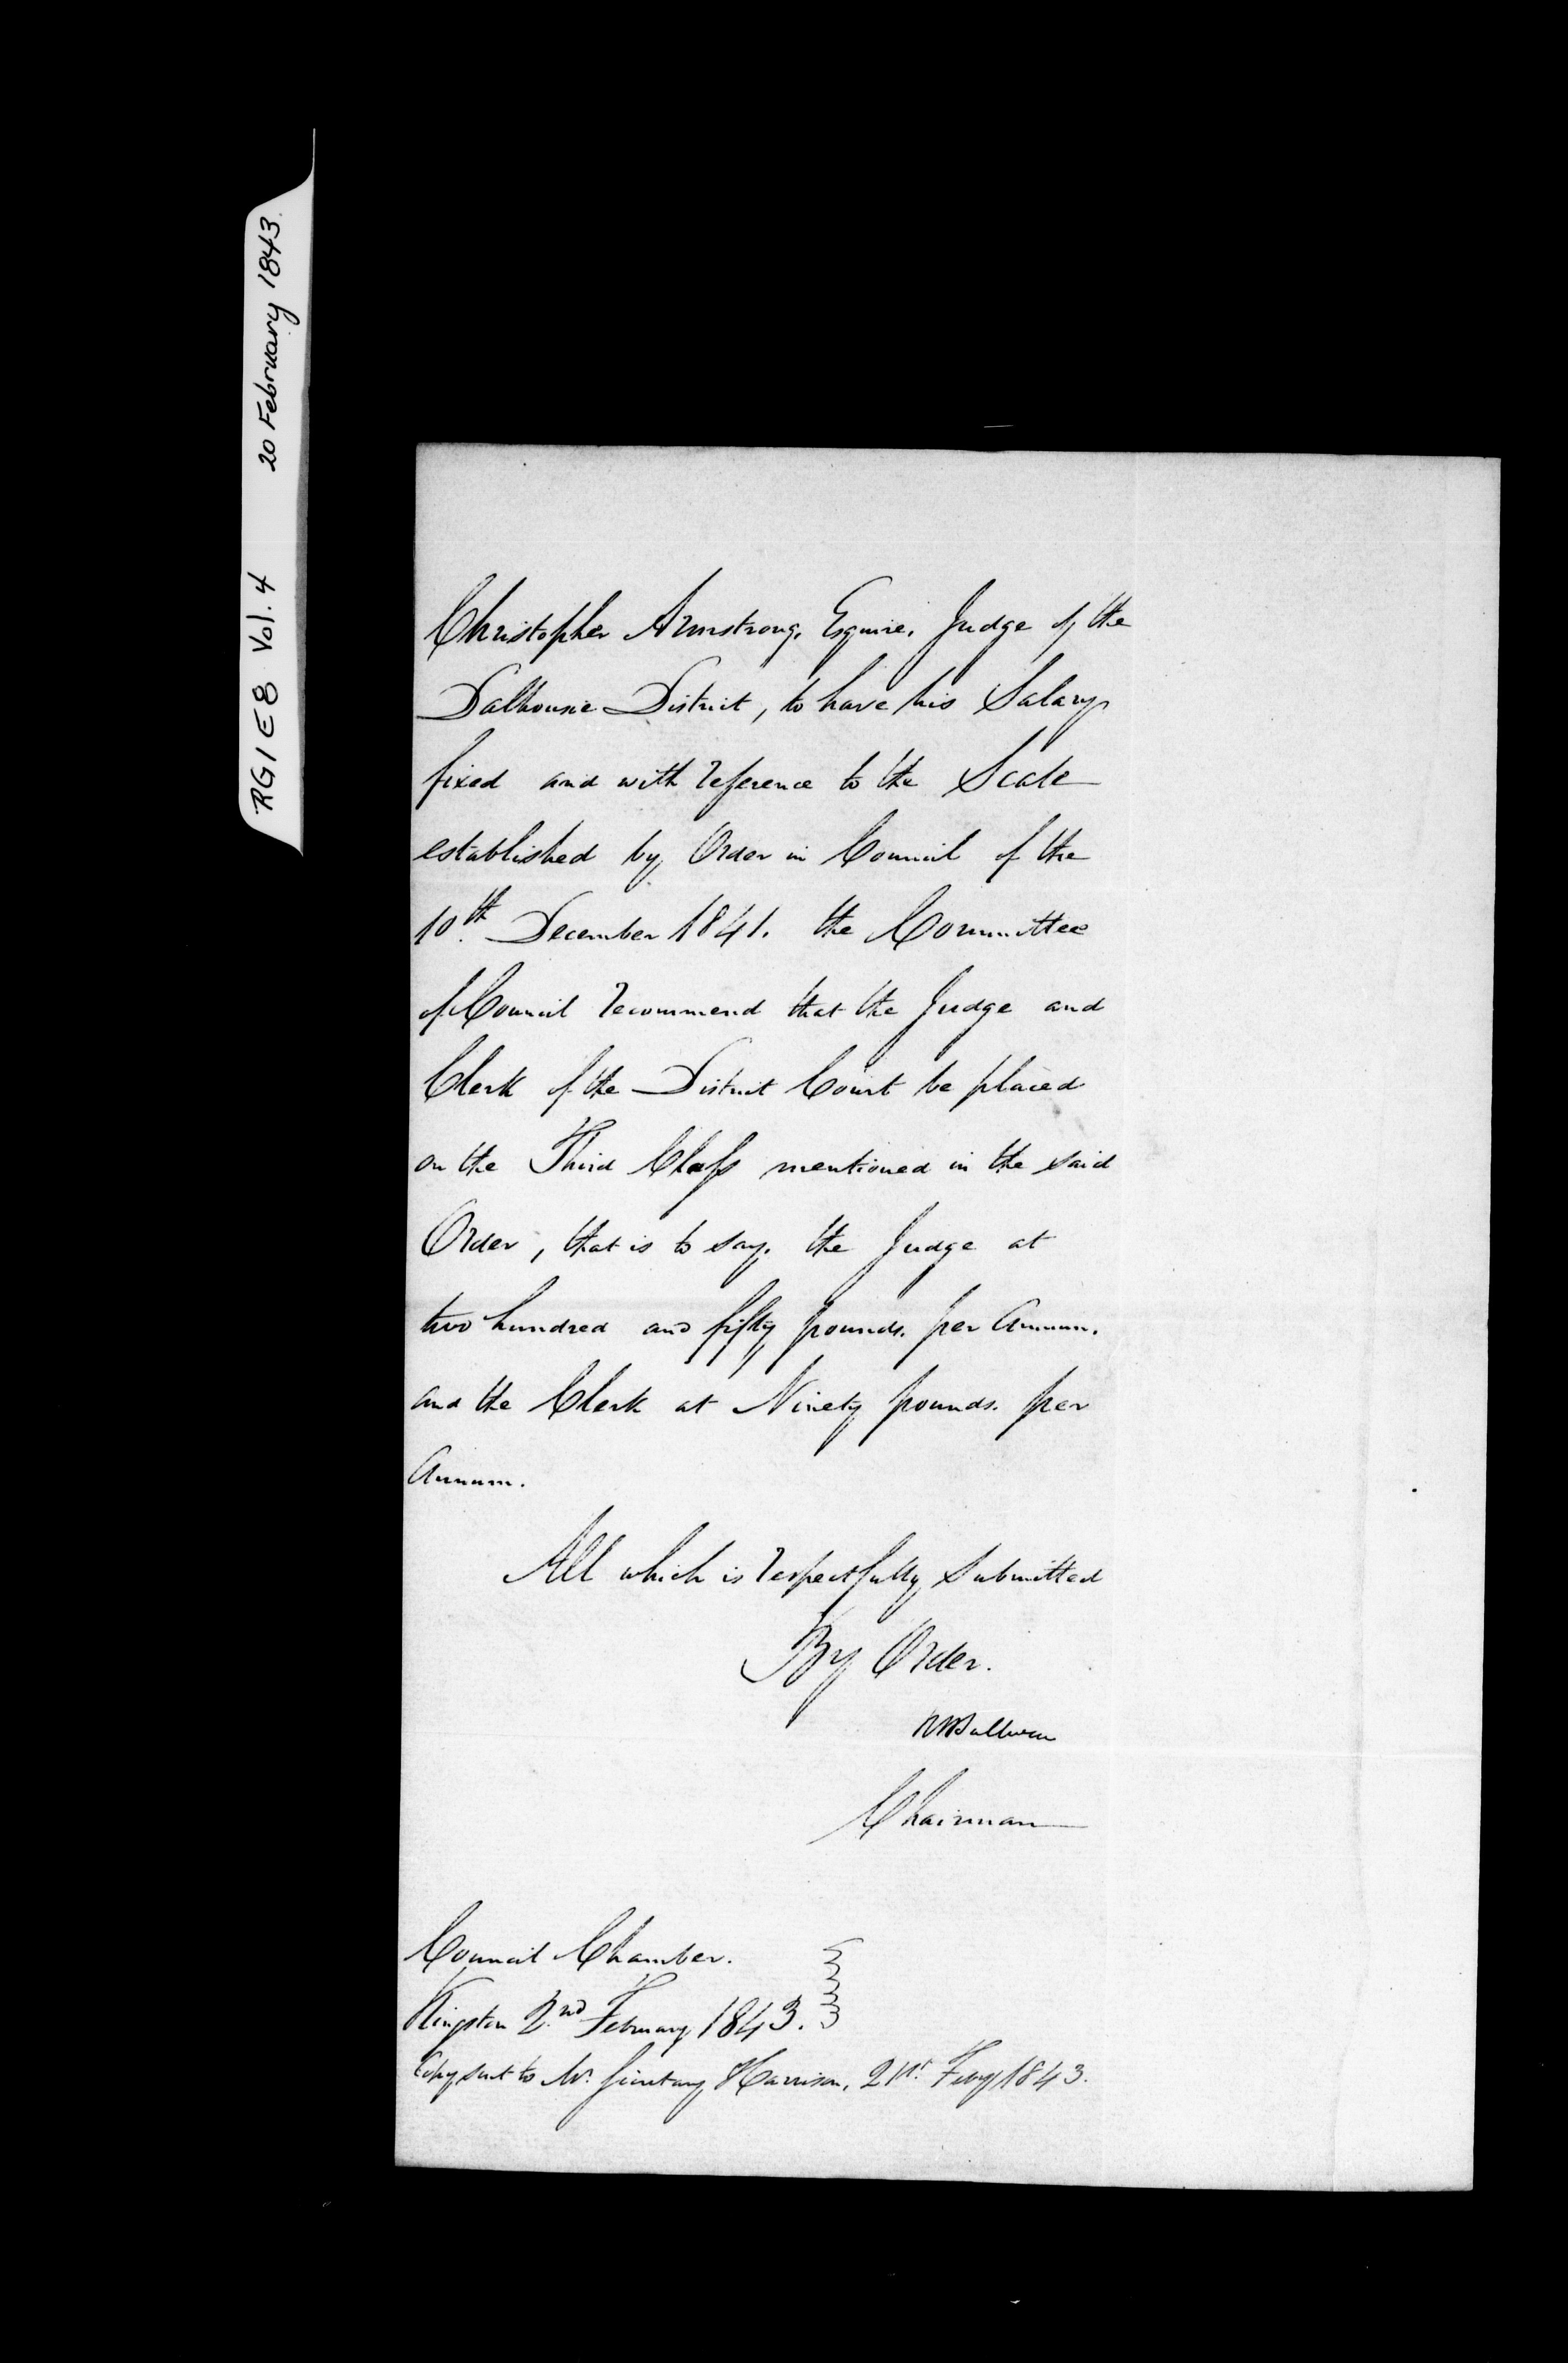 RG1 E8 Vol. 4 20 February 1843.
Christopher Armstrong, Esquire, Judge of the
Dalhousie District, to have his Salary
fixed and with reference to the Scale
established by Order in Council of the
10th December 1841. the Committee
of Council recommend that the Judge and
Clerk of the District Court be placed
on the Third Class mentioned in the said
Order, that is to say, the Judge at
two hundred and fifty pounds. per Annum.
and the Clerk at Ninety pounds. per
Annum.
All which is respectfully Submitted
By Order.
RBSullivan
Chairman
Council Chamber.
Kingston 2nd February 1843.
Copy sent to Mr. Secretary Harrison, 21st. Feby 1843.